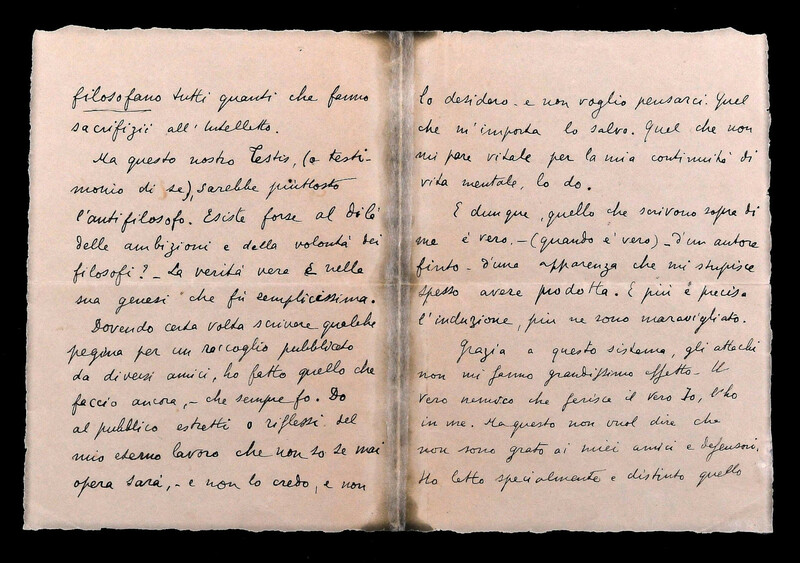 filosofano tutti quanti che fanno
sacrifizii all'Intelletto.
Ma questo nostro Testis, (o testi-
monio di se), sarebbe piuttosto
l'antifilosofo. Esiste forse al dilà
delle ambizioni e della volontà dei
filosofi? - La verità vera è nella
sua genesi che fù semplicissima.
Dovendo certa volta scrivere qualche
pagina per un raccoglio pubblicato
da diversi amici, ho fatto quello che
faccio ancora, - che sempre fo. Do
al pubblico estretti o riflessi del
mio eterno lavoro che non so se mai
opera sarà, - e non lo credo, e non
lo desidero - e non voglio pensarci. Quel
che m'importa lo salvo. Quel che non
mi pare vitale per la mia continuità di
vita mentale, lo do.
E dunque, quello che scrivono sopra di
me è vero. - (quando è vero) - d'un autore
finto - d'una apparenza che mi stupisce
spesso avere prodotta. E più è precisa
l'induzione, più ne sono maravigliato.
Grazia a questo sistema, gli attachi
non mi fanno grandissimo effetto - Il
vero nemico che ferisce il vero Io, l'ho
in me. Ma questo non vuol dire che
non sono grato ai miei amici e defensori.
Ho letto specialmente e distinto quello